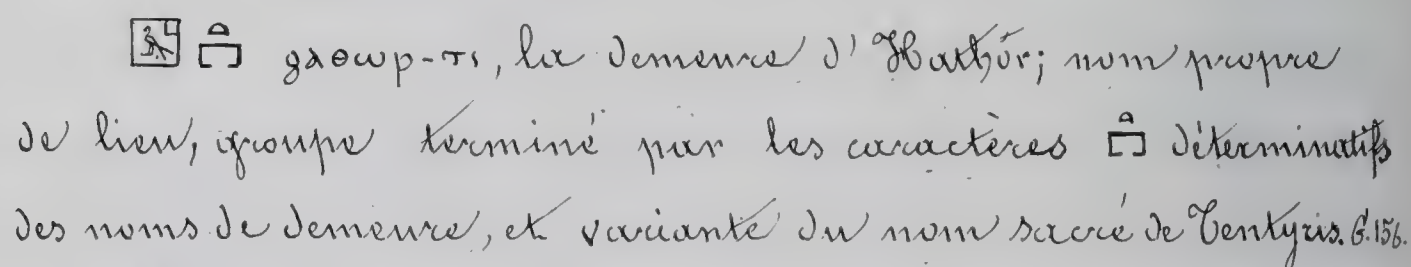 ϩⲁⲑⲱⲣ-ⲧⲓ, la demeure d'Hathôr; nom propre
de lieu, groupe terminé par les caractères 𓏏𓉐 déterminatifs
des noms de demeure, et variante du nom sacré de Tentyris. G. 156.